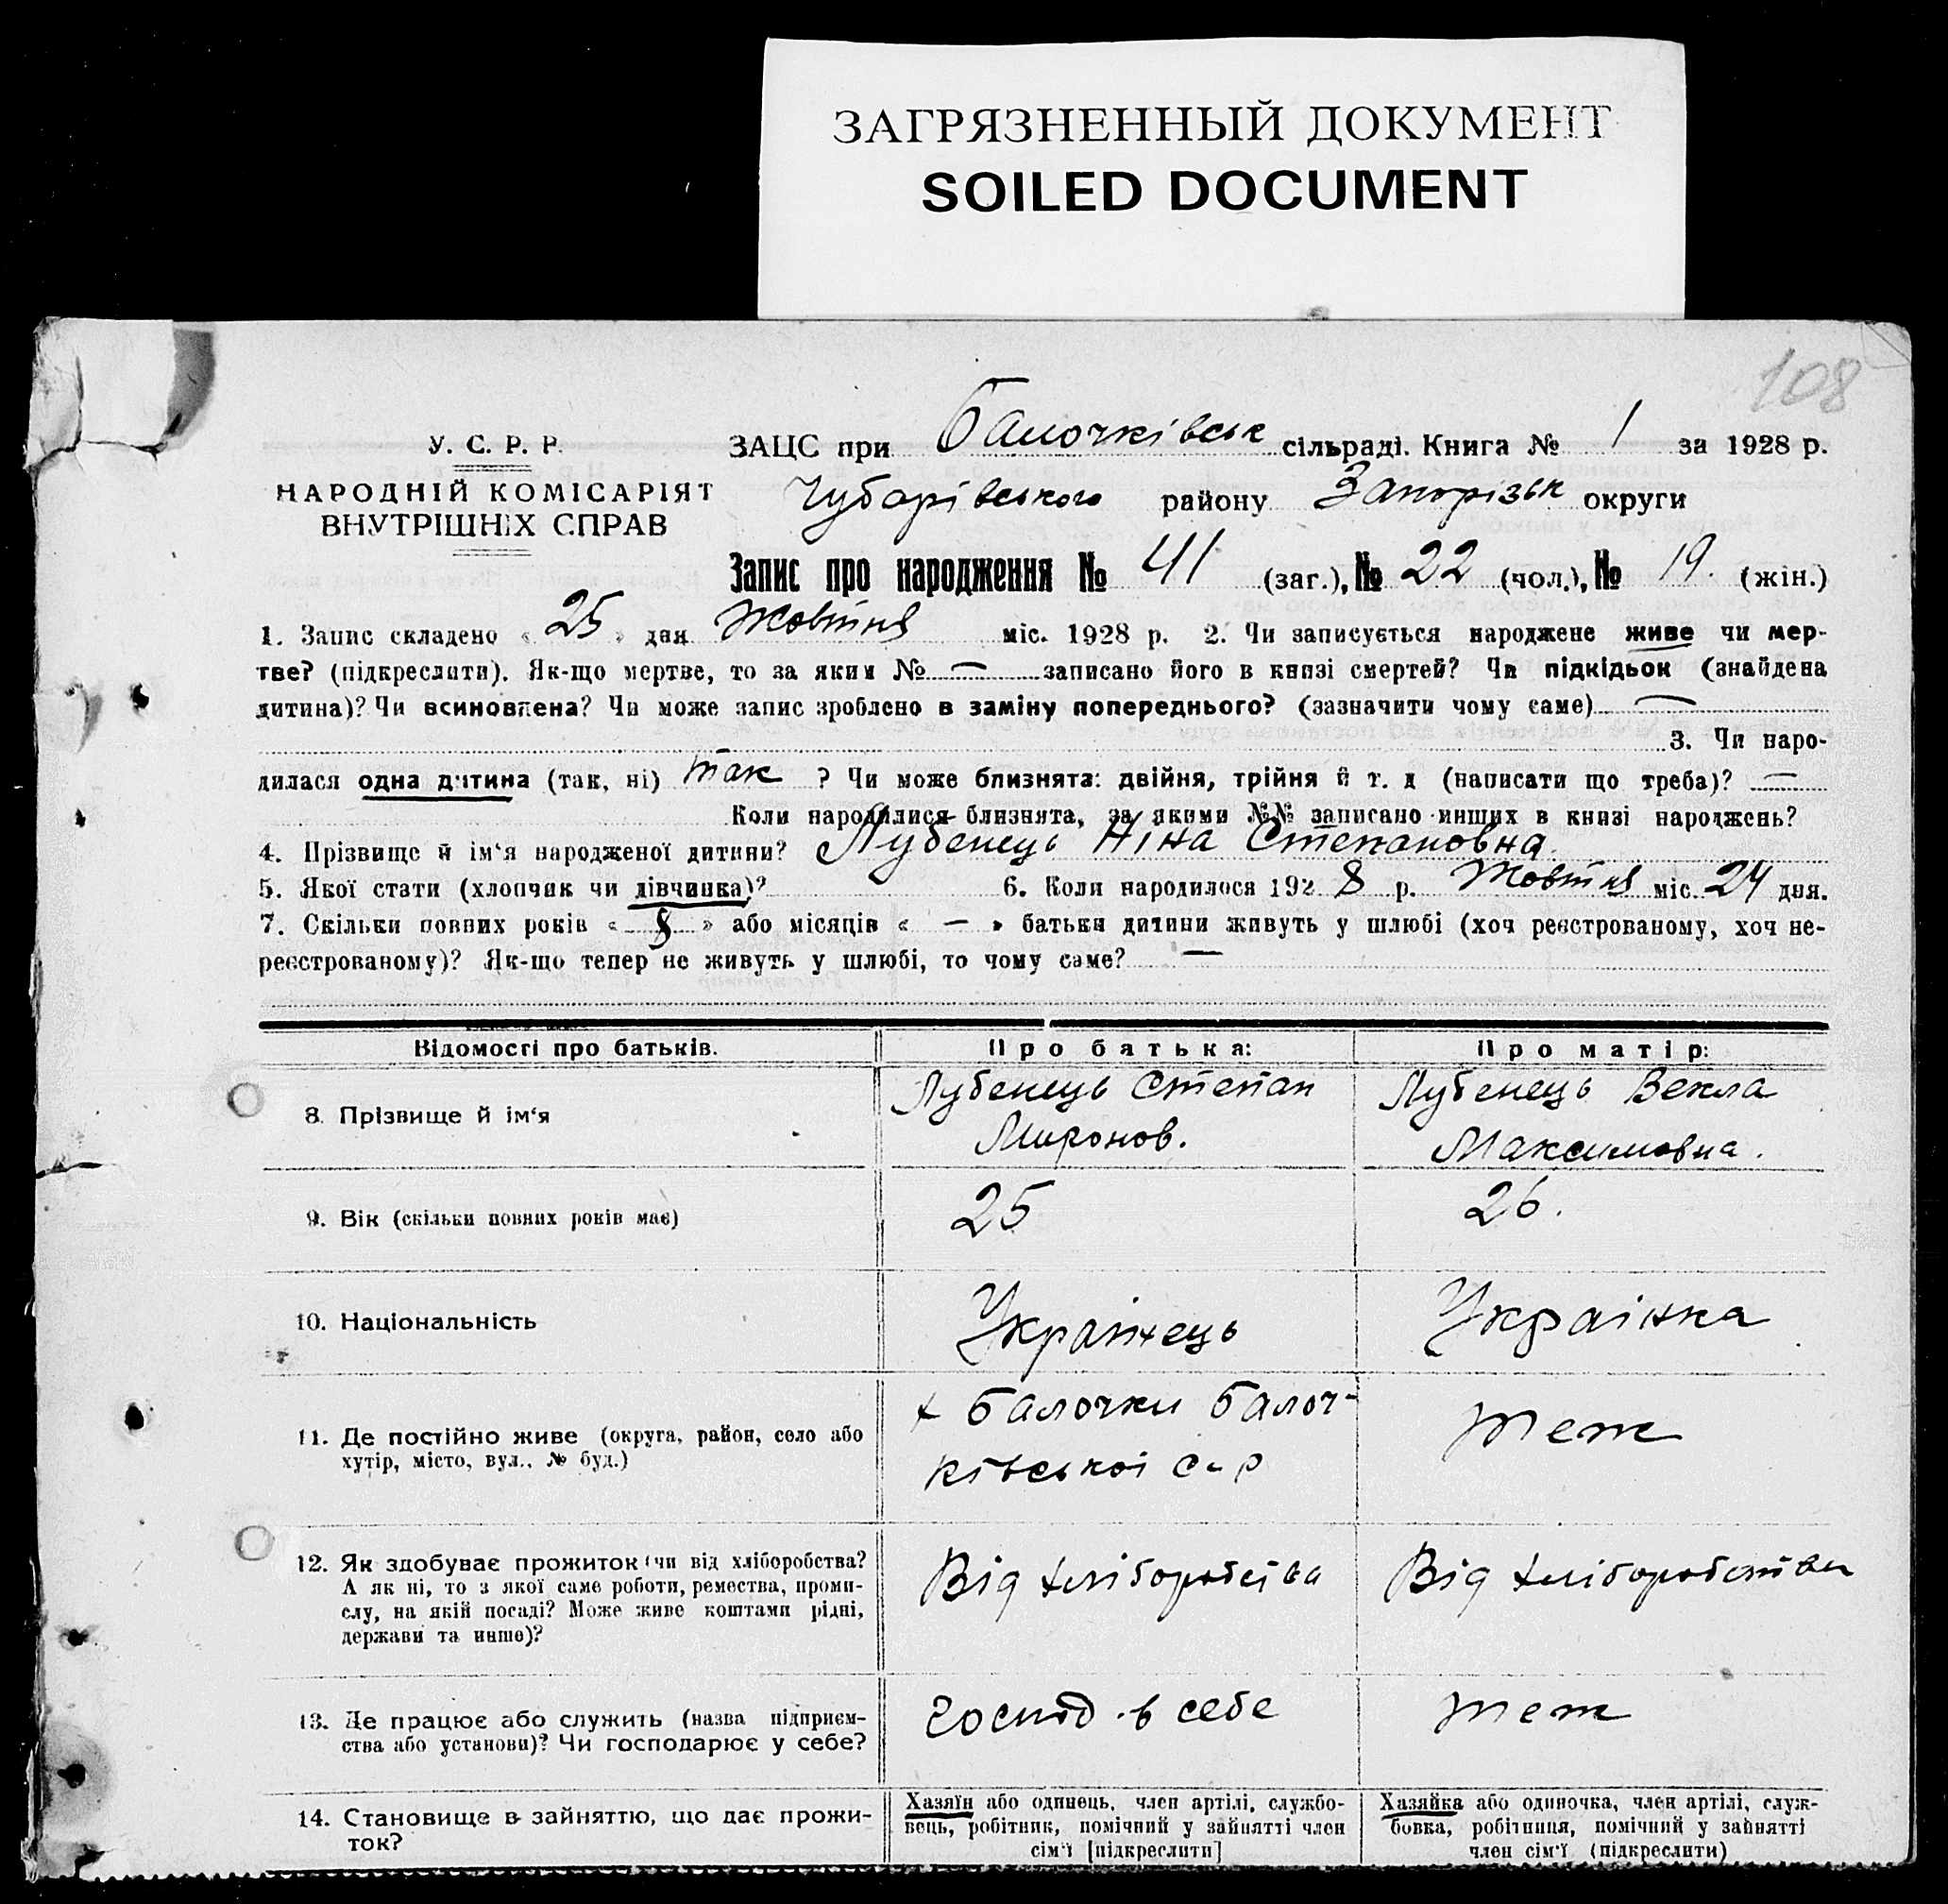 ЗАГРЯЗНЕННЫЙ ДОКУМЕНТ
SOILED DOCUMENT
108
У. С. Р. Р.
НАРОДНІЙ КОМІСАРІЯТ
ВНУТРІШНІХ СПРАВ
ЗАЦС при Балочківськ сільраді. Книга № 1 за 1928 р.
Чубарівського району Запорізьк округи
Запис про народження № 41 (заг.), № 22 (чол.), № 19. (жін.)
1. Запис складено « 25 » дня Жовтня міс. 1928 р. 2. Чи записується народжене живе чи мер-
тве? (підкреслити). Як-що мертве, то за яким № — записано його в книзі смертей? Чи підкідьок (знайдена
дитина)? Чи всиновлена? Чи може запис зроблено в заміну попереднього? (зазначити чому саме) —
3. Чи наро-
дилася одна дитина (так, ні) так ? Чи може близнята: двійня, трійня й т. д (написати що треба)? —
Коли народилися близнята, за якими №№ записано инших в книзі народжень?
4. Прізвище й ім‘я народженої дитини? Лубенець Ніна Степановна
5. Якої стати (хлопчик чи дівчинка)? 6. Коли народилося 192 8 р. Жовтня міс. 24 дня.
7. Скільки повних років « 8 » або місяців « — » батьки дитини живуть у шлюбі (хоч реєстрованому, хоч не-
реєстрованому)? Як-що тепер не живуть у шлюбі, то чому саме? —
Відомості про батьків. Про батька: Про матір:
8. Прізвище й ім‘я
Лубенець Степан
Миронов.
Лубенець Векла
Максимовна.
9. Вік (скільки повних років має)
25
26.
10. Національність
Українець
Украінка
11. Де постійно живе (округа, район, село або
хутір, місто, вул., № буд.)
х Балочки Балоч-
ківськоі с-р
теж
12. Як здобуває прожиток (чи від хліборобства?
А як ні, то з якої саме роботи, ремества, проми-
слу, на якій посаді? Може живе коштами рідні,
держави та инше)?
Від хліборобства
Від хліборобства
13. Де працює або служить (назва підприєм-
ства або установи)? Чи господарює у себе?
Господ. в себе
теж
14. Становище в зайняттю, що дає прожи-
ток?
Хазяїн або одинець, член артілі, службо-
вець, робітник, помічний у зайнятті член
сім‘ї [підкреслити]
Хазяйка або одиночка, член артілі, служ-
бовка, робітниця, помічний у зайнятті
член сім‘ї (підкреслити)